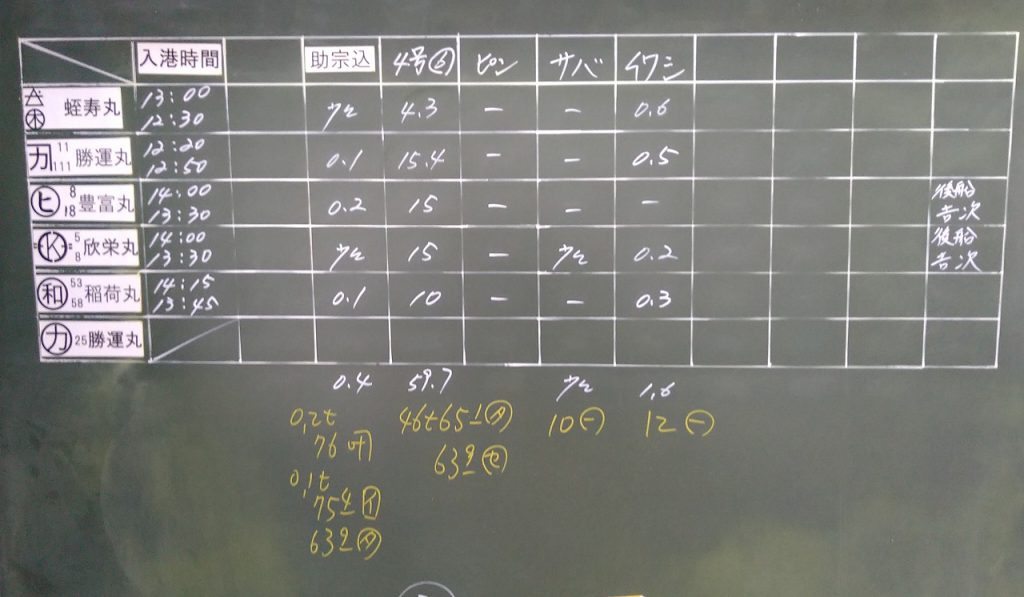 入港時間 助宗込 4号 ピン サバ イワシ
木 蛭寿丸 13:00 12:30 4.3 － － 0.6
力 11 111 勝運丸 12:20 12:50 0.1 15.4 － － 0.5
ヒ 8 18 豊富丸 14:00 13:30 0.2 15 － － － 後船 吉次
K 5 8 欣栄丸 14:00 13:30 15 － 0.2 後船 吉次
和 53 58 稲荷丸 14:15 13:45 0.1 10 － － 0.3
力 25 勝運丸
0.4 59.7 1.6
0,2t 46t65 10 12
76
63
0,1t
75
63